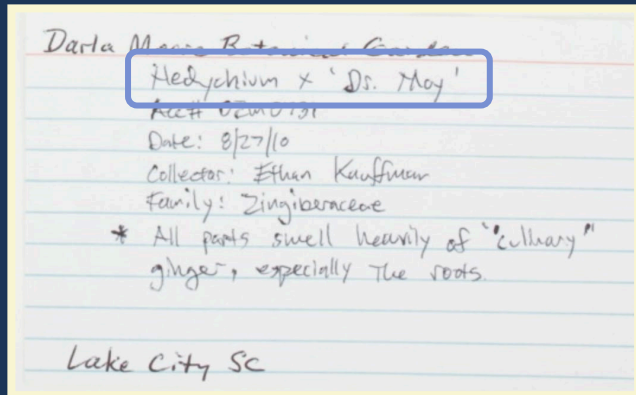 Darla Moore Botanical Garden
Hedychium x 'Dr. Moy'
Acc#
Date: 8/27/10
Collector: Ethan Kauffman
Family: Zingiberaceae
* All parts smell heavily of "culinary"
ginger, especially the roots.
Lake City SC